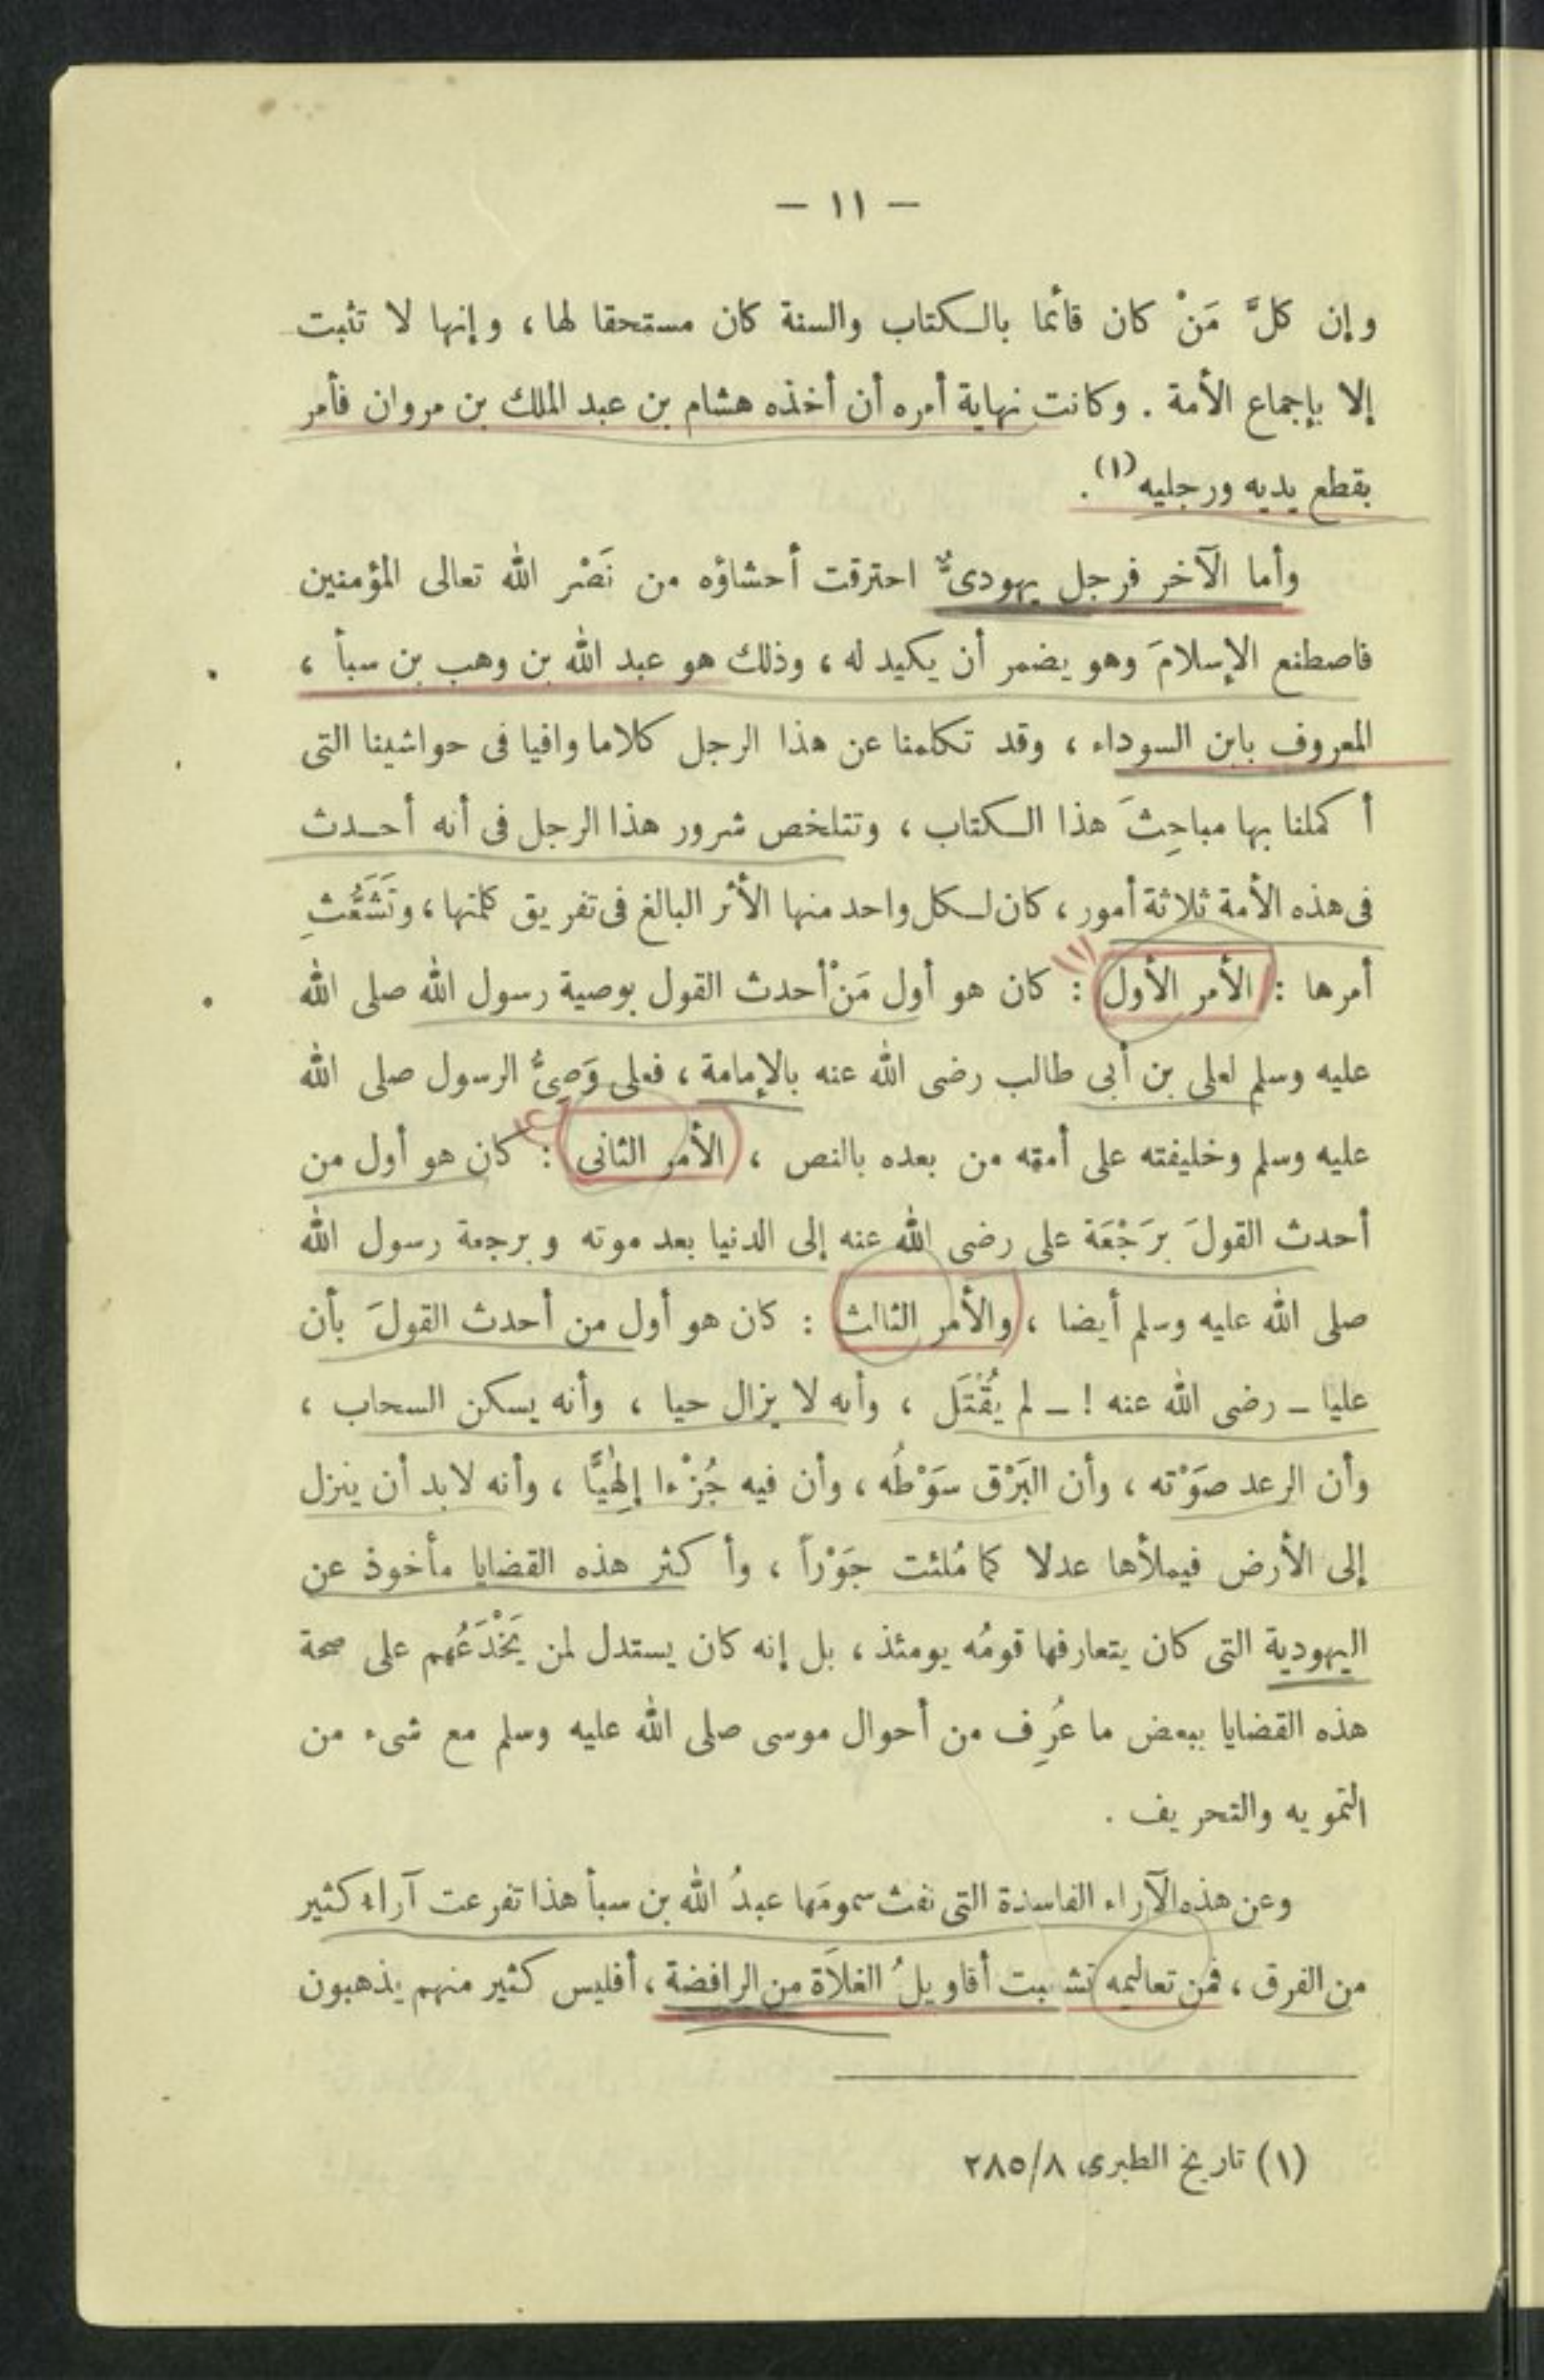 — ١١ —
وإن كلَّ مَنْ كان قائما بالكتاب والسنة كان مستحقا لها ، وإنها لا تثبت
إلا بإجماع الأمة . وكانت نهاية أمره أن أخذه هشام بن عبد الملك بن مروان فأمر
بقطع يديه ورجليه (١) .
وأما الآخر فرجل يهودىٌّ احترقت أحشاؤه من نَصْر الله تعالى المؤمنين
فاصطنع الإسلامَ وهو يضمر أن يكيد له ، وذلك هو عبد الله بن وهب بن سبأ ،
المعروف بابن السوداء ، وقد تكلمنا عن هذا الرجل كلاما وافيا فى حواشينا التى
أكملنا بها مباحِثَ هذا الكتاب ، وتتلخص شرور هذا الرجل فى أنه أحدث
فى هذه الأمة ثلاثة أمور ، كان لكل واحد منها الأثر البالغ فى تفريق كلمتها ، وتَشَعُّثِ
أمرها : الأمر الأول : كان هو أول مَنْ أحدث القول بوصية رسول الله صلى الله
عليه وسلم لعلى بن أبى طالب رضى الله عنه بالإمامة ، فعلى وَصِىُّ الرسول صلى الله
عليه وسلم وخليفته على أمته من بعده بالنص ، الأمر الثانى : كان هو أول من
أحدث القولَ بَرَجْعَة على رضى الله عنه إلى الدنيا بعد موته وبرجعة رسول الله
صلى الله عليه وسلم أيضا ، والأمر الثالث : كان هو أول من أحدث القولَ بأن
عليا – رضى الله عنه ! – لم يُقْتَل ، وأنه لا يزال حيا ، وأنه يسكن السحاب ،
وأن الرعد صَوْته ، وأن البَرْق سَوْطُه ، وأن فيه جُزْءا إلهيًّا ، وأنه لابد أن ينزل
إلى الأرض فيملأها عدلا كما مُلئت جَوْراً ، وأكثر هذه القضايا مأخوذ عن
اليهودية التى كان يتعارفها قومُه يومئذ ، بل إنه كان يستدل لمن يَخْدَعُهم على صحة
هذه القضايا ببعض ما عُرِف من أحوال موسى صلى الله عليه وسلم مع شىء من
التمويه والتحريف .
وعن هذه الآراء الفاسدة التى نفث سمومَها عبدُ الله بن سبأ هذا تفرعت آراء كثير
من الفرق ، فمن تعاليمه تشعبت أقاويلُ الغلاَة من الرافضة ، أفليس كثير منهم يذهبون
(١) تاريخ الطبرى ٢٨٥/٨